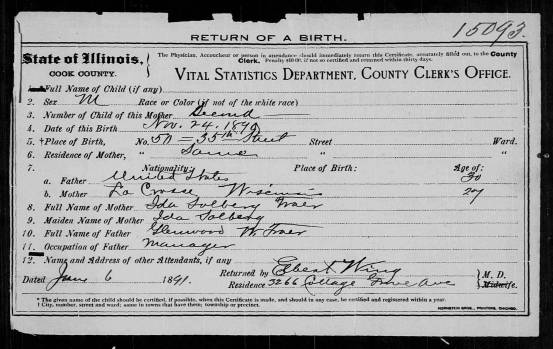 15093.
RETURN OF A BIRTH.
State of Illinois,
COOK COUNTY.
The Physician, Accoucheur or person in attendance should immediately return this Certificate, accurately filled out, to the County
Clerk. Penalty $10.00, if not so certified and returned within thirty days.
VITAL STATISTICS DEPARTMENT, COUNTY CLERK'S OFFICE.
1. Full Name of Child (if any)
2. Sex M Race or Color (if not of the white race)
3. Number of Child of this Mother Second
4. Date of this Birth Nov. 24. 1890
5. †Place of Birth, No. 35th Street Street Ward.
6. Residence of Mother, " Same " "
7. Nationality: Place of Birth: Age of:
a. Father United States 30
b. Mother La Crosse Wisconsin 27
8. Full Name of Mother Ida Solberg
9. Maiden Name of Mother Ida Solberg
10. Full Name of Father Glenwood W.
11. Occupation of Father Manager
12. Name and Address of other Attendants, if any
Dated June 6 1891. Returned by Elbert Wing M. D.
Residence 3266 Cottage Grove Ave Midwife.
* The given name of the child should be certified, if possible, when this Certificate is made, and should in any case, be certified and registered within a year.
† City, number, street and ward; same in towns that have them; township or precinct.
PRINTERS, CHICAGO.